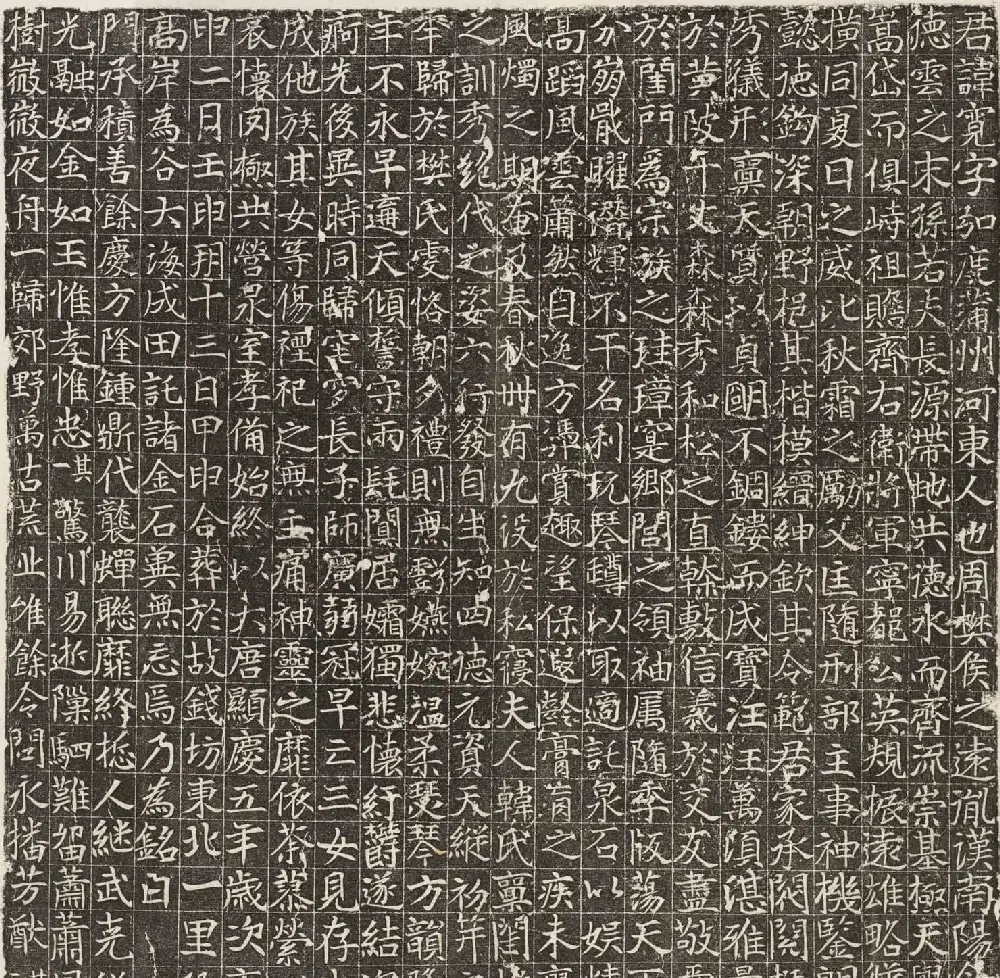 君諱寬字知度蒲州河東人也周樊侯之遠胤漢南陽
德雲之末孫若夫長源帶地共德水而齊流崇基極天
嵩岱而俱峙祖贍齊右衛將軍寧都公英規振遠雄略
橫同夏日之威比秋霜之勵父匡隨刑部主事神機鑒
懿德鈎深朝野挹其楷模縉紳欽其令範君家承閥閱
秀儀形稟天質以貞明不錮鏤而成寶汪汪萬頃湛雅
於黃陂千丈森森秀和松之直幹敷信義於交友盡敬
於閨門為宗族之珪璋寔鄉閭之領袖属隨季版蕩天
分崩戢曜潛輝不干名利玩琴罇以取適託泉石以娛
高蹈風雲蕭然自逸方憑賞趣望保遐齡膏肓之疾未
風燭之期奄及春秋卌有九歿於私寢夫人韓氏稟閨
之訓秀絕代之姿六行發自生知四德元資天縱初笄
奉歸於樊氏虔恪朝夕禮則無虧嬿婉温柔瑟琴方韻
年不永早遘天傾誓守兩髦閒居孀獨悲懷紆欝遂結
痾先後異時同歸窀穸長子師廣弱冠早亡三女見存
成他族其女等傷禋祀之無主痛神靈之靡依荼蓼縈
哀懷罔極共營泉室孝備始終以大唐顯慶五年歲次
申二日壬申朔十三日甲申合葬於故錢坊東北一里
高岸為谷大海成田託諸金石冀無忘焉乃為銘曰
門承積善餘慶方隆鍾鼎代襲蟬聯靡終挺人継武克
光融如金如玉惟孝惟忠其一驚川易逝隟駟難留蕭蕭
樹微微夜舟一歸郊野萬古荒丘唯餘令問永播芳猷